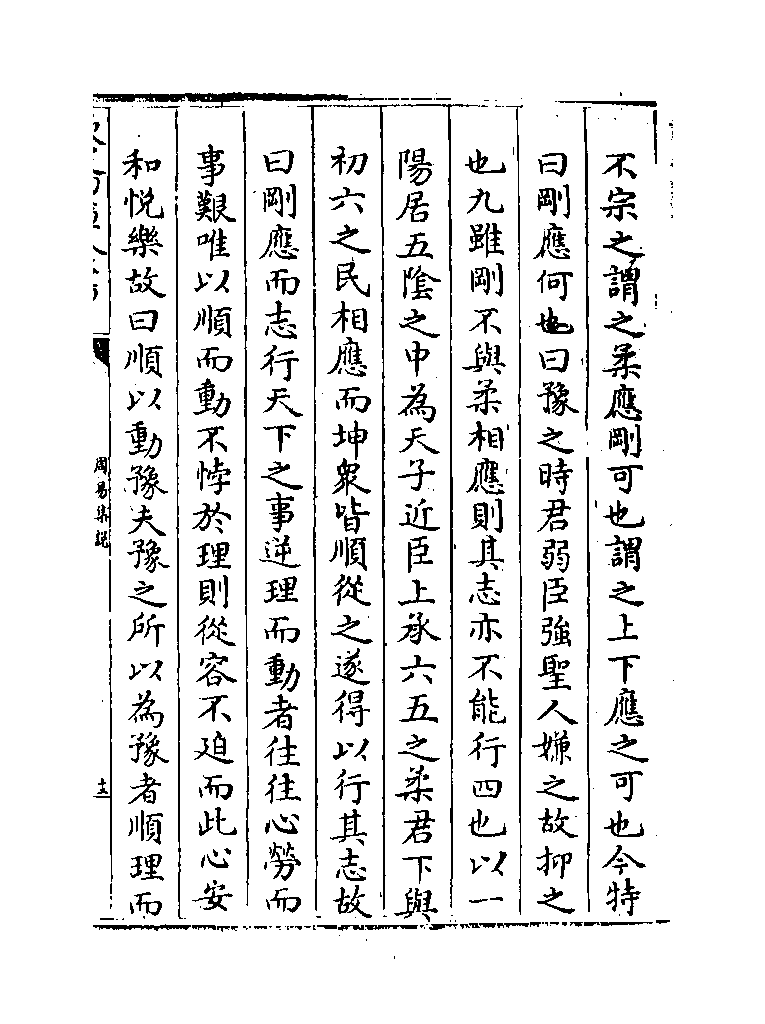 不宗之謂之柔應剛可也謂之上下應之可也今特
曰剛應何也曰豫之時君弱臣強聖人嫌之故抑之
也九雖剛不與柔相應則其志亦不能行四也以一
陽居五陰之中為天子近臣上承六五之柔君下與
初六之民相應而坤衆皆順從之遂得以行其志故
曰剛應而志行天下之事逆理而動者往往心勞而
事艱唯以順而動不悖於理則從容不迫而此心安
和悅樂故曰順以動豫夫豫之所以為豫者順理而
周易集說
十三